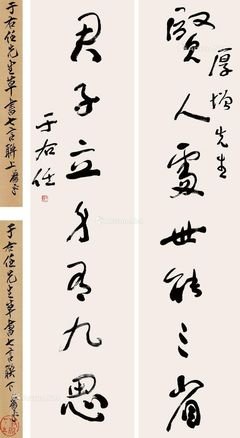 厚增先生
賢人處世能三省
君子立身有九思
于右任
于右任先生草書七言聯上
于右任先生草書七言聯下